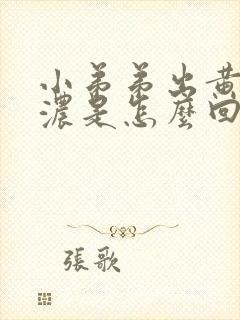 小弟弟出黄
濃是怎麼回
張歌